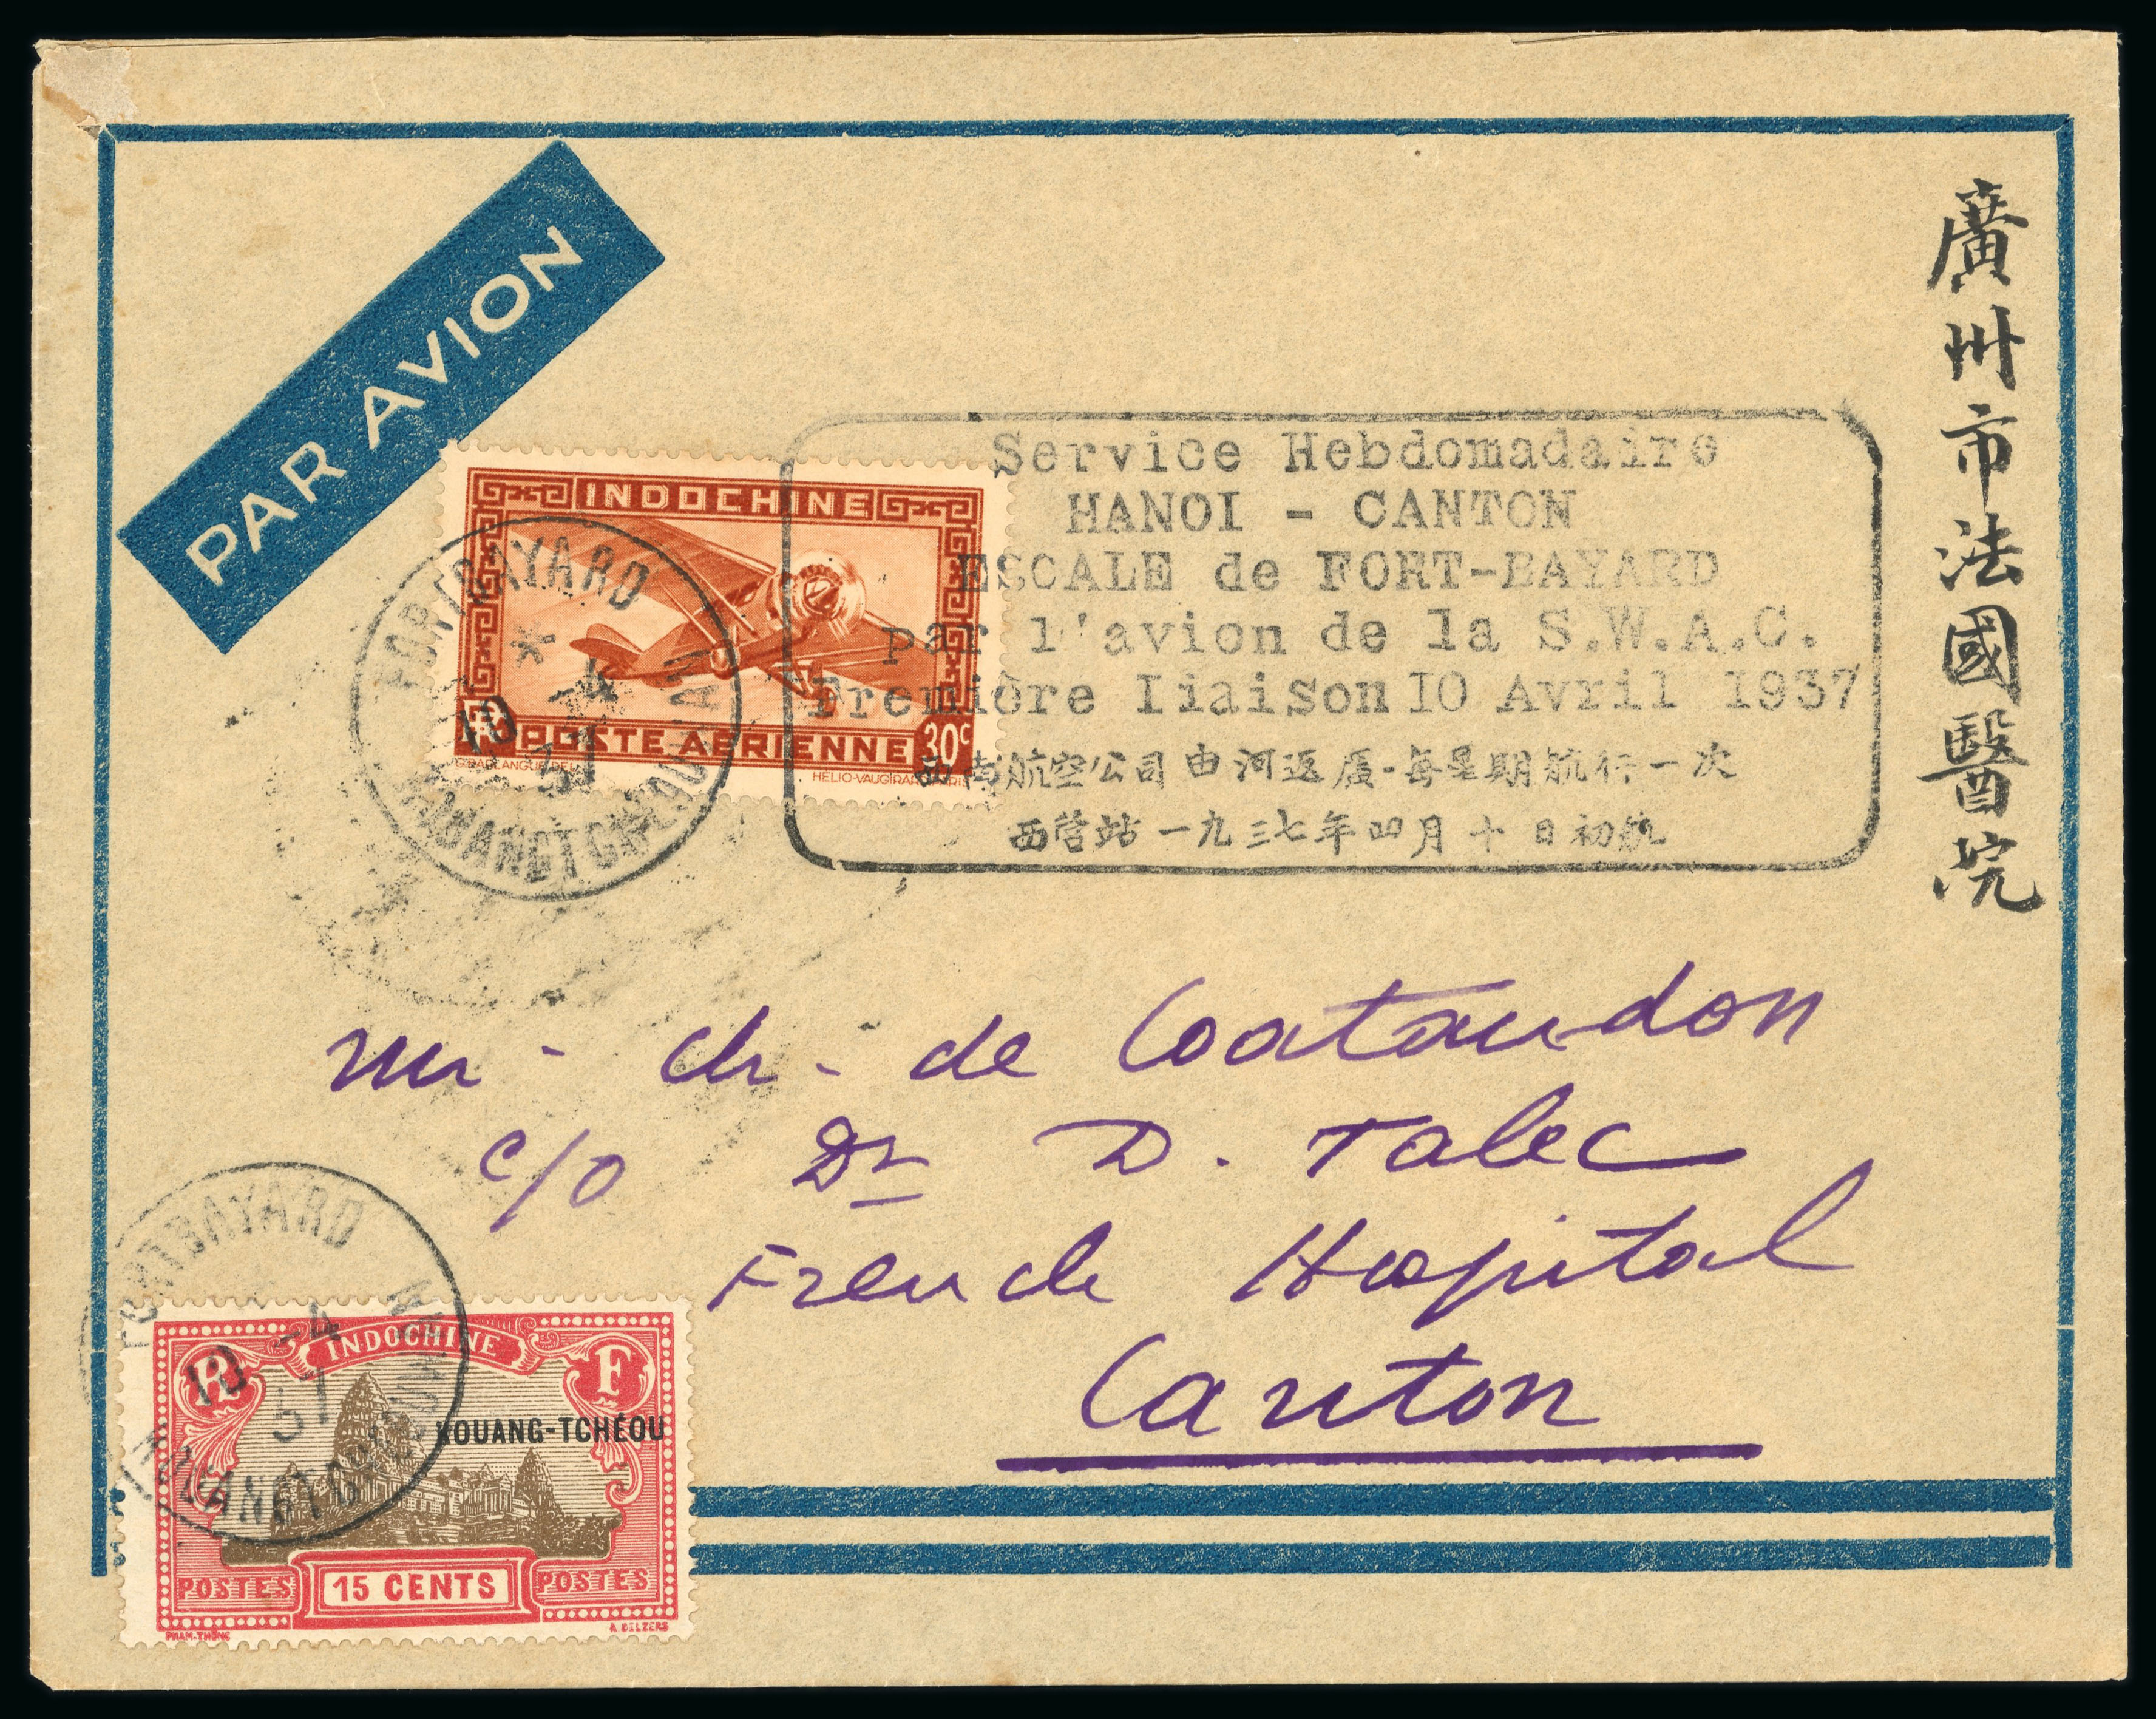 PAR AVION
廣州市法國醫院
INDOCHINE
RF POSTE AERIENNE 30c
HELIO-VAUGIRARD PARIS
FORT BAYARD
10 -4
37
KOUANGTCHEOUWAN
Service Hebdomadaire
HANOI - CANTON
ESCALE de FORT-BAYARD
par l'avion de la S.W.A.C.
Première liaison IO Avril 1937
西南航空公司由河返廣·每星期航行一次
西營站一九三七年四月十日初航
Mr - Ch - de Coataudon
c/o Dr D. Talec
French Hospital
Canton
FORT BAYARD
10 -4
37
KOUANGTCHEOUWAN
INDOCHINE
R F
KOUANG-TCHÉOU
POSTES 15 CENTS POSTES
PHAM-THÔNG A DELZERS